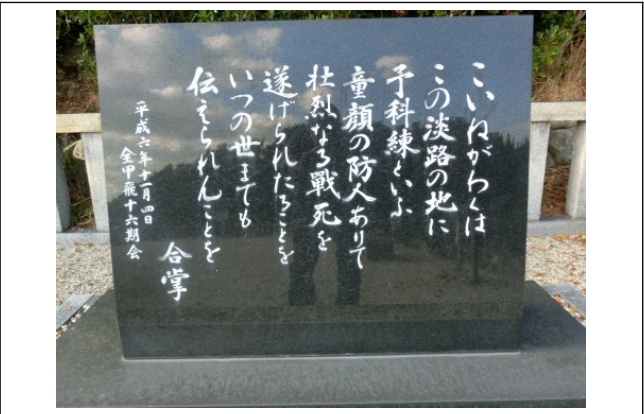 こいねがわくは
この淡路の地に
予科練といふ
童顔の防人ありて
壮烈なる戰死を
遂げられたることを
いつの世までも
伝えられんことを
合掌
平成六年十一月四日
全甲飛十六期会